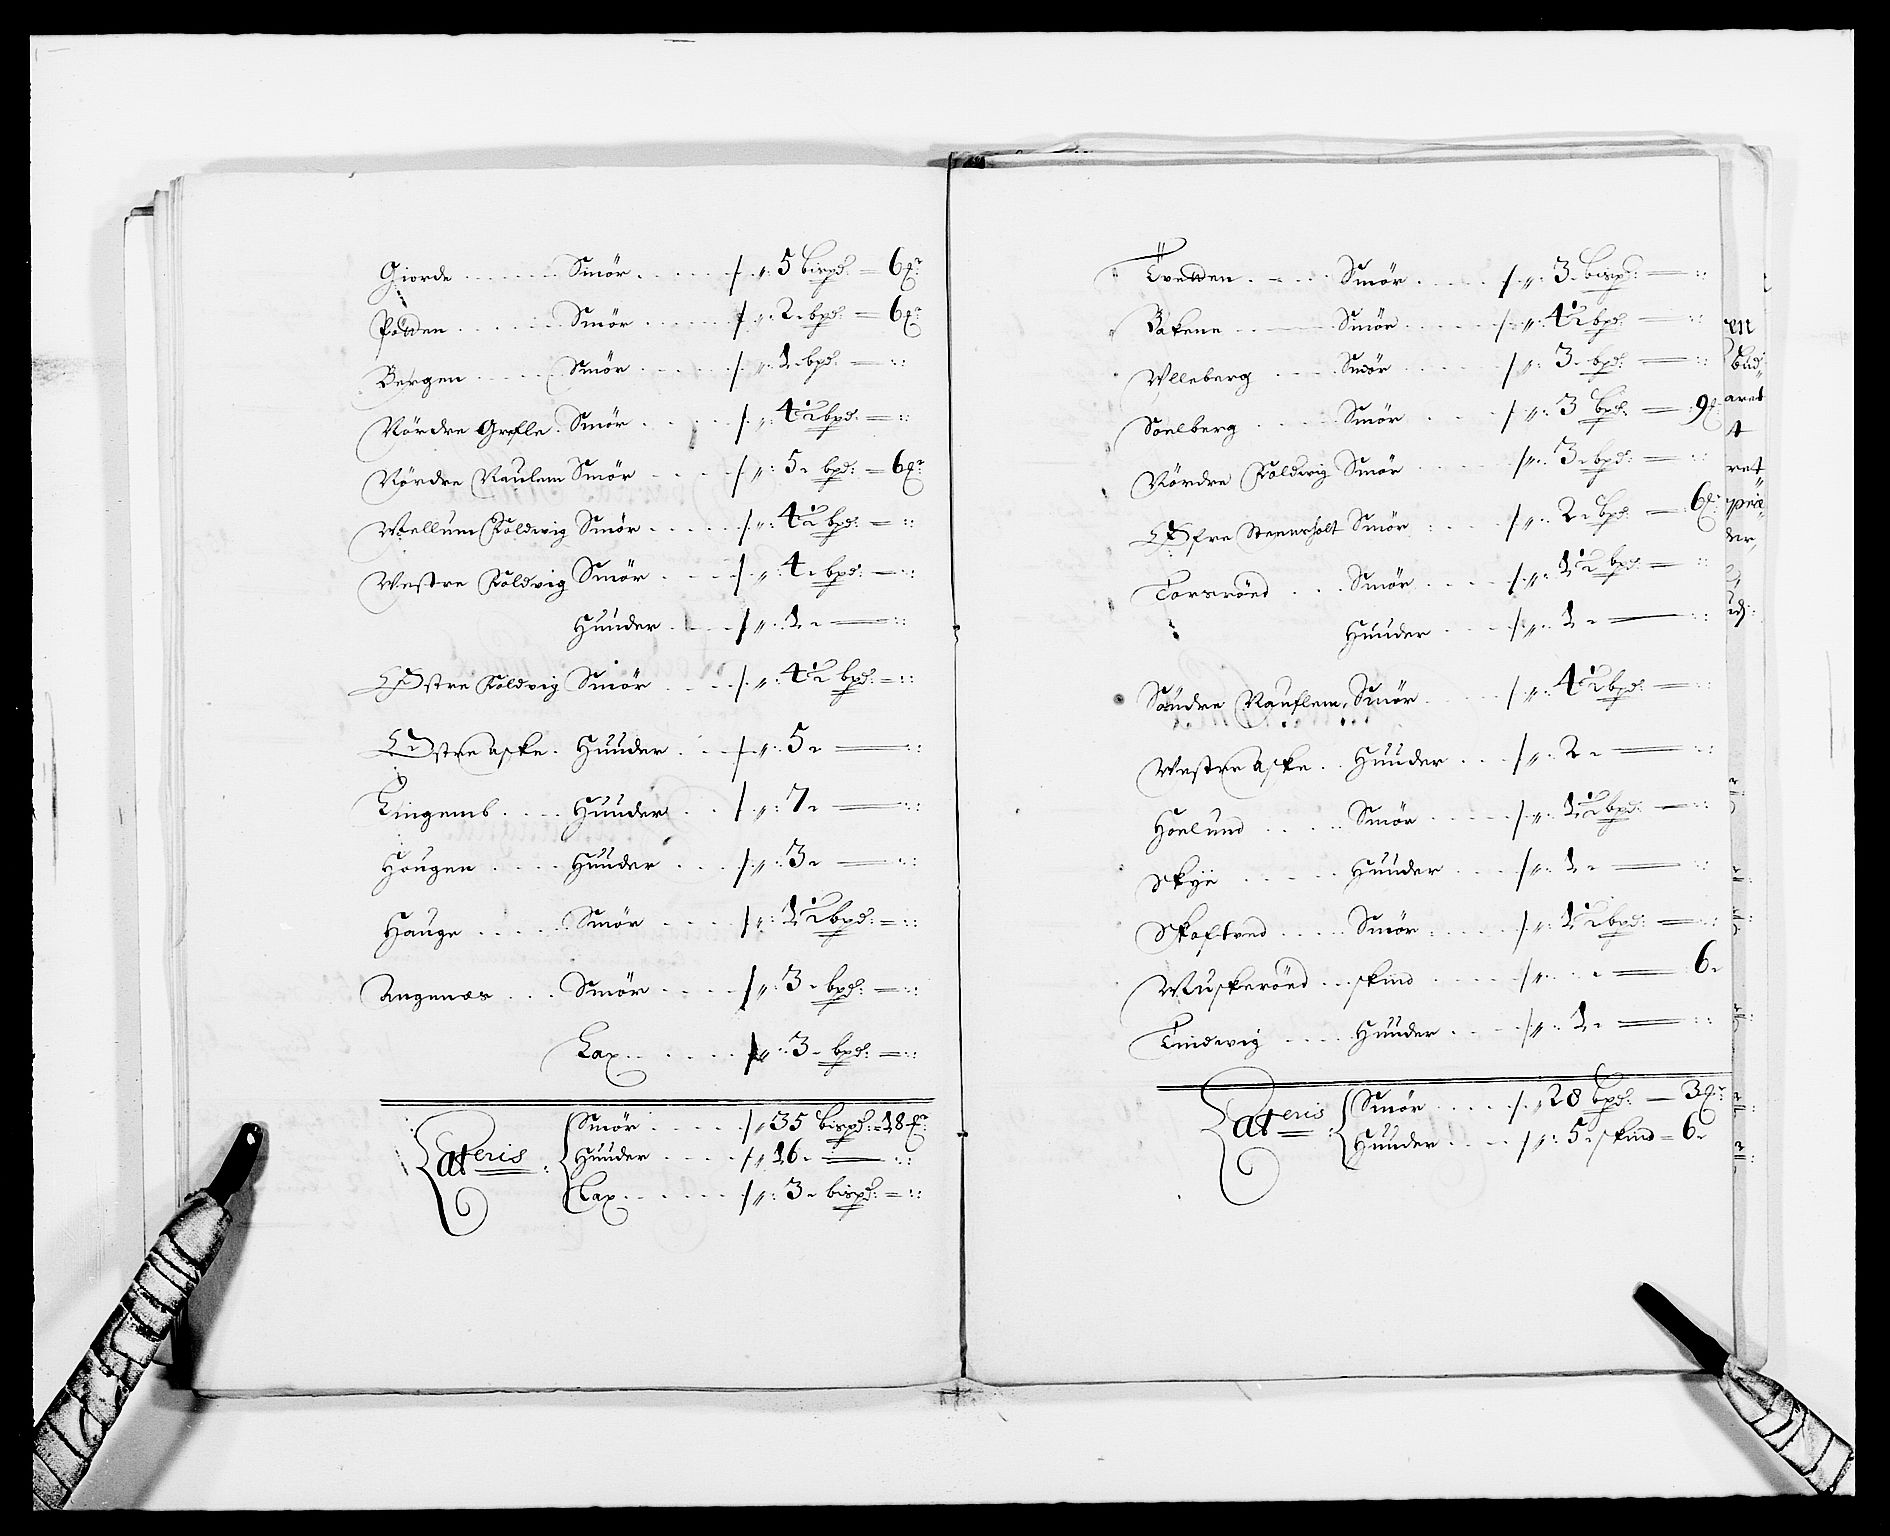 Giorde . . . . Smör . . . . / „: 5 bispd: — 6 
Polden . . . . Smör . . . . / „: 2 bpd: — 6 
Bergen . . . . Smör . . . . / „: 1 bpd: — ::
Nördre Grefle . Smör . . . . / „: 4½ bpd: — ::
Nördre Raulem Smör . . . . / „: 5 bpd: — 6 
Mellum Foldvig Smör . . . . / „: 4½ bpd: — ::
Westre Foldvig Smör . . . . / „: 4 bpd: — ::
Huuder . . . / „: 1 — ::
Østre Foldvig Smör . . . . / „: 4½ bpd: — ::
Østre Aske . Huuder . . . / „: 5 — ::
Huuder . . / „: 7 — ::
Hougen . . . . Huuder . . . / „: 3 — ::
Hauge . . . . . Smör . . . . / „: 1½ bpd: — ::
Angenæs . . . Smör . . . . / „: 3 bpd: — ::
Lax . . . . . / „: 3 bpd: — ::
Lateris :
Smör . . . . . / „ 35 bispd: — 18 
Huuder . . . . / „ 16 — ::
Lax . . . . . . / „: 3 bispd: — ::
Tvedten . . . . Smör . . . . / „: 3 bispd: — ::
Bakene . . . . Smör . . . . / „: 4½ bpd: — ::
Ulleberg . . . . Smör . . . . / „: 3 bpd: — ::
Soelberg . . . . Smör . . . . / „: 3 bpd: — 9 
Nördre Foldvig Smör . . . . / „: 3 bpd: — ::
Øfre Steensholt Smör . . . . / „: 2 bpd: — 6 
Torsröed . . . Smör . . . . / „: 1½ bpd: — ::
Huuder . . . . / „: 1 — ::
Söndre Rauflem, Smör . . . . / „: 4½ bpd: — ::
Westre Aske . . Huuder . . . / „: 2 — ::
Hoelund . . . . Smör . . . . / „: 1½ bpd: — ::
Skye . . . . . Huuder . . . . / „: 1 — ::
Skaftved . . . . Smör . . . . / „: 1½ bpd: — ::
Muskeröed . . . skind . . . . / „: — 6
Tindevig . . . . Huuder . . . . / „: 1 — ::
Lateris :
Smör . . . . / „ 28 bpd: — 3 
Huuder . . . . / „: 5 skind — 6